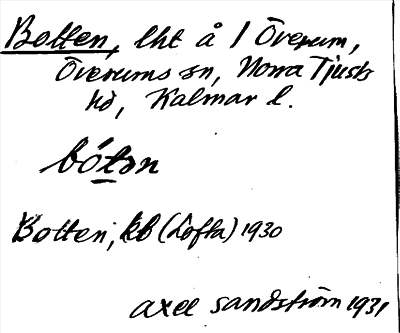 Botten, lht å 1 Överum,
Överums sn, Norra Tjusts
hd, Kalmar l.
bótən
Botten, kb (Lofta) 1930
Axel Sandström 1931